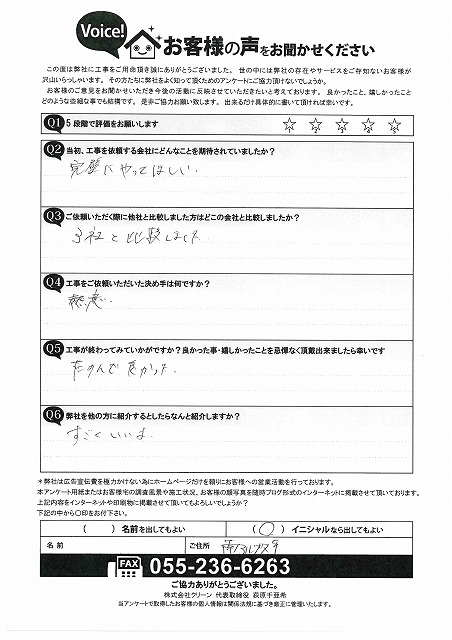 Voice!
お客様の声をお聞かせください
この度は弊社に工事をご用命頂き誠にありがとうございました。 世の中には弊社の存在やサービスをご存知ないお客様が
沢山いらっしゃいます。 その方たちに弊社をよく知って頂くためのアンケートにご協力頂けないでしょうか。
お客様のご意見をお聞かせいただき今後の活動に反映させていただきたいと考えております。 良かったこと、嬉しかったこと
どのような些細な事でも結構です。 是非ご協力お願い致します。 出来るだけ具体的に書いて頂ければ幸いです。
Q1 5段階で評価をお願いします ☆1 ☆2 ☆3 ☆4 ☆5
Q2 当初、工事を依頼する会社にどんなことを期待されていましたか?
完璧にやってほしい.
Q3 ご依頼いただく際に他社と比較しました方はどこの会社と比較しましたか?
3社と比較しました.
Q4 工事をご依頼いただいた決め手は何ですか?
態度.
Q5 工事が終わってみていかがですか?良かった事・嬉しかったことを忌憚なく頂戴出来ましたら幸いです
たのんで良かった.
Q6 弊社を他の方に紹介するとしたらなんと紹介しますか?
すごくいいよ.
*弊社は広告宣伝費を極力かけない為にホームページだけを頼りにお客様への営業活動を行っております。
本アンケート用紙またはお客様宅の調査風景や施工状況、お客様の顔写真を随時ブログ形式のインターネットに掲載させて頂いております。
上記内容をインターネットや印刷物に掲載させて頂いてもよろしいでしょうか?
下記の中から〇印をお付下さい。
( ) 名前を出してもよい (○) イニシャルなら出してもよい
名前 ご住所 南アルプス市
FAX 055-236-6263
ご協力ありがとうございました。
株式会社クリーン 代表取締役 萩原千亜希
当アンケートで取得したお客様の個人情報は関係法規に基づき厳正に管理いたします。